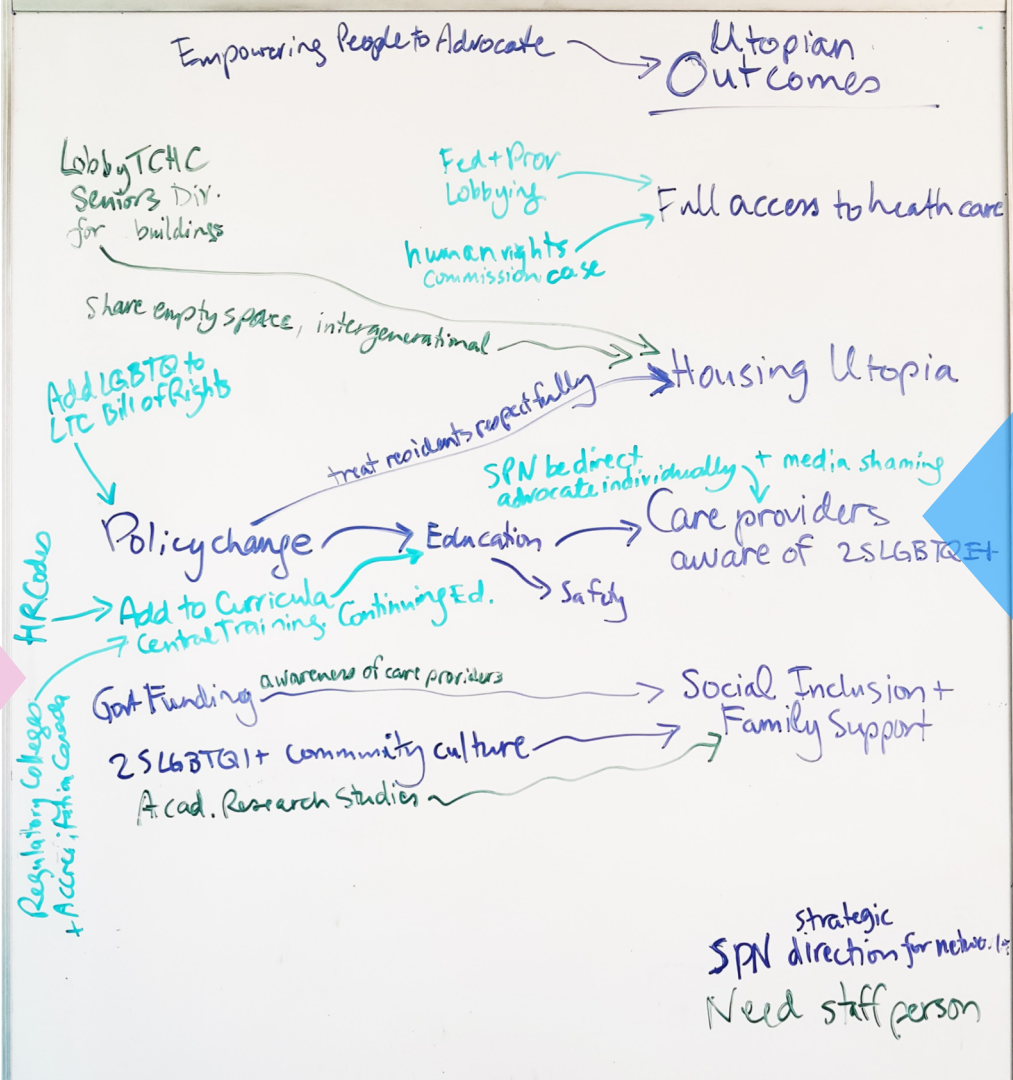 Empowering People to Advocate
Utopian
Outcomes
Lobby TCHC
Seniors Div.
for buildings
Fed + Prov
Lobbying
Full access to heath care
human rights
commission case
Share empty space, intergenerational
Housing Utopia
Add LGBTQ to
LTC Bill of Rights
treat residents respectfully
SPN be direct
advocate individually
+ media shaming
Policy change
Education
Care providers
aware of 2SLGBTQI+
Safety
HR Codes
Add to Curricula
Central Training, Continuing Ed.
Govt Funding
awareness of care providers
Social Inclusion +
Family Support
2SLGBTQI+ community culture
Acad. Research Studies
Regulatory Colleges
Canada
strategic
SPN direction for
Need staff person